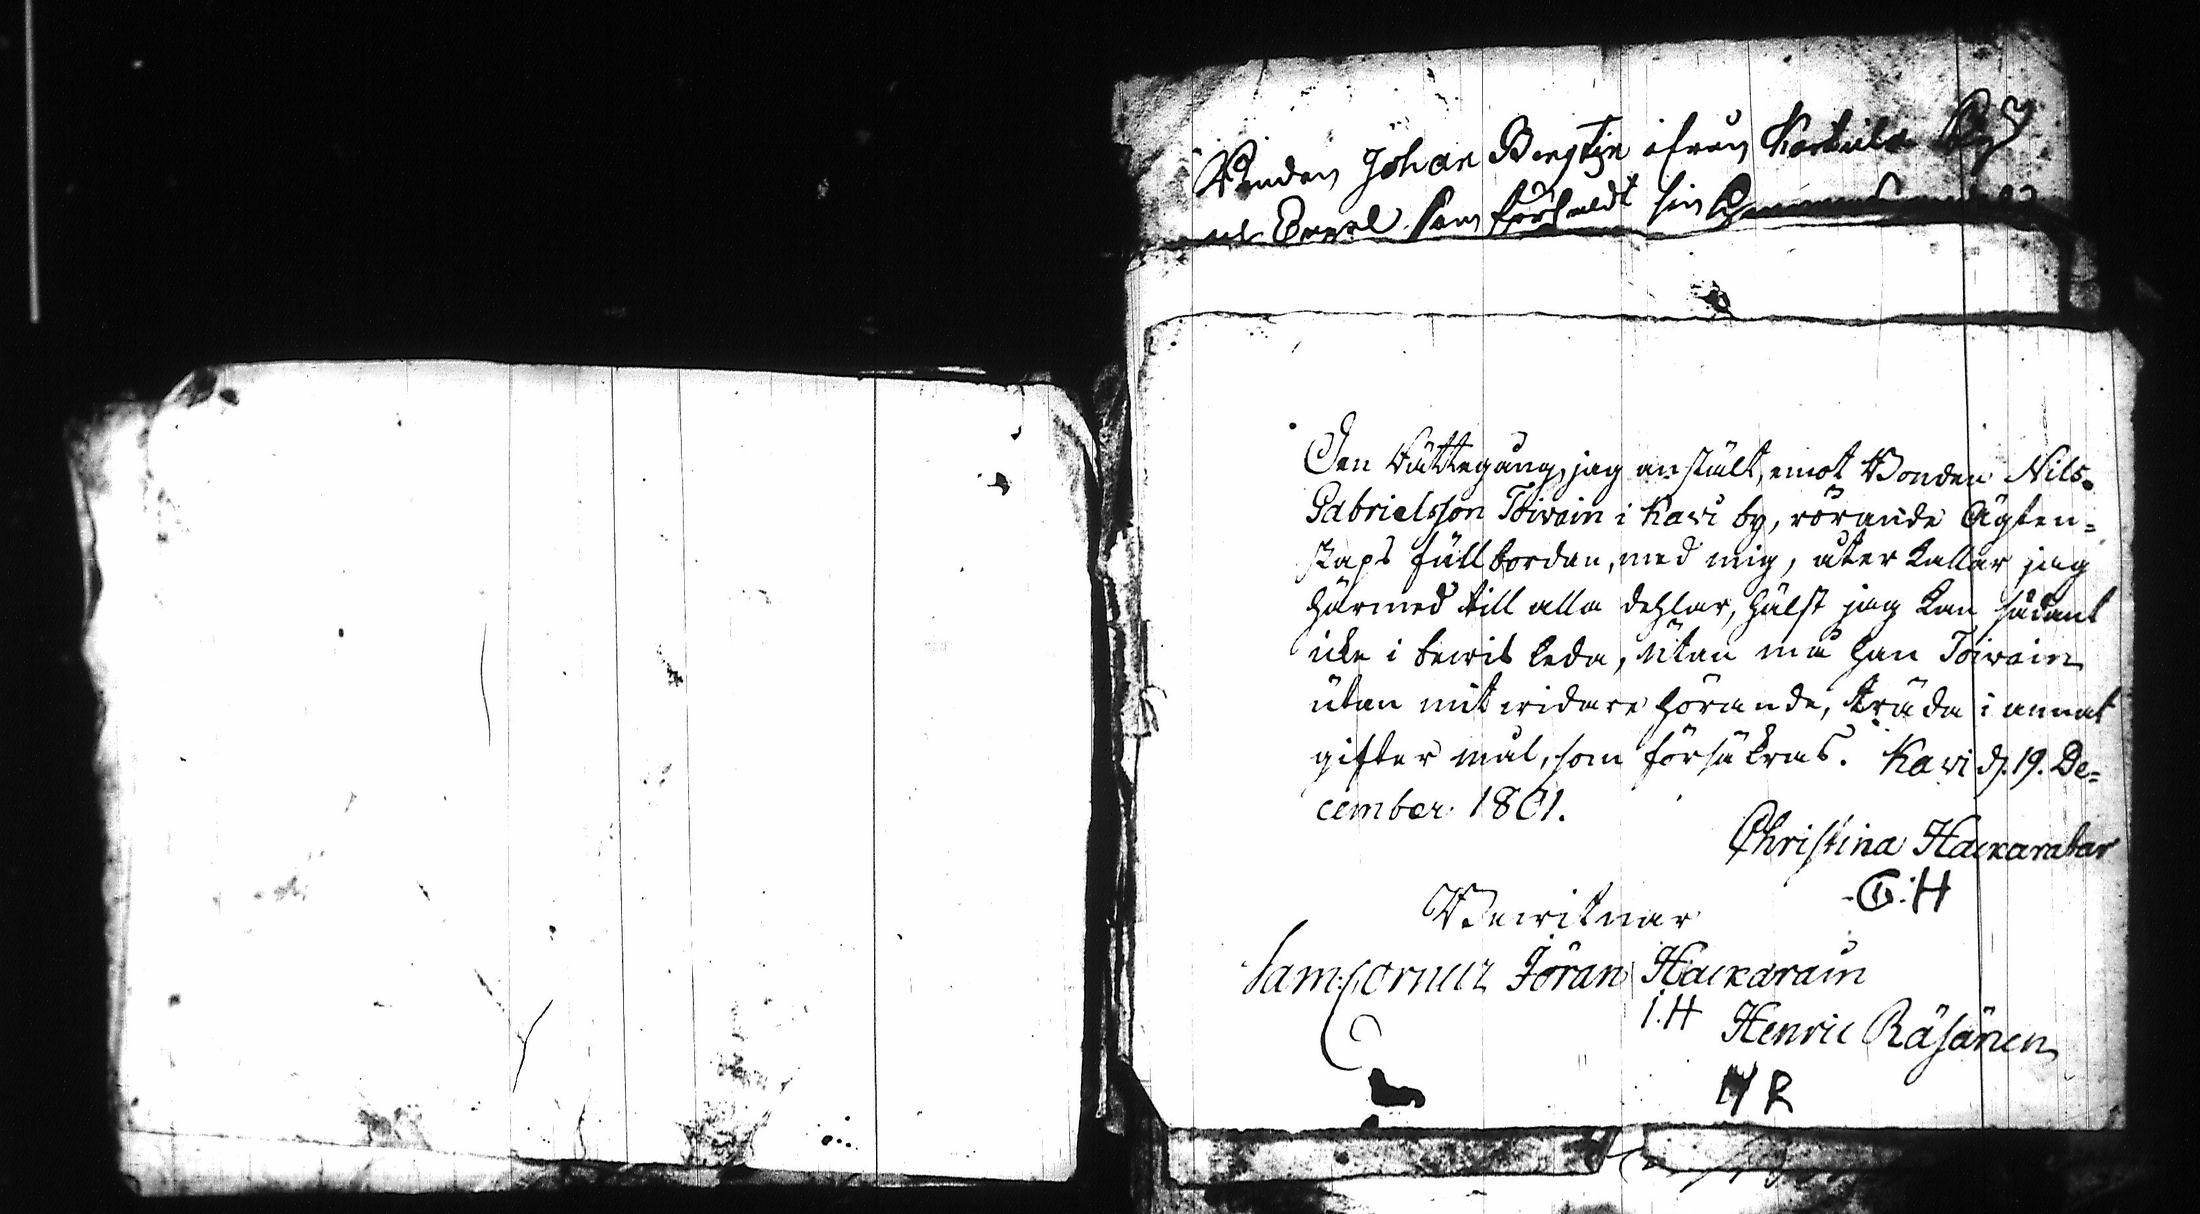 Bonden Johan Bengtzn ifrån Koskula By
som förskuldt sin
Den Rättegång, jag anstält, emot Bonden Nils
Gabrielsson Toivain i Kavi by, rörande Ägten-
skaps fullbordan, med mig, åter kallar jag
härmed till alla dehlar, hälst jag kan sådant
icke i bewis leda, utan må han Toivain
utan mit widare hörande, träda i annat
giftermål, som försäkras. Kavi d. 19. De-
cember 1801.
Christina Hackaratar
C:H
Bewitnar
Sam: Cornér Jöran Hackarain
I.H Henric Räsänen
H R